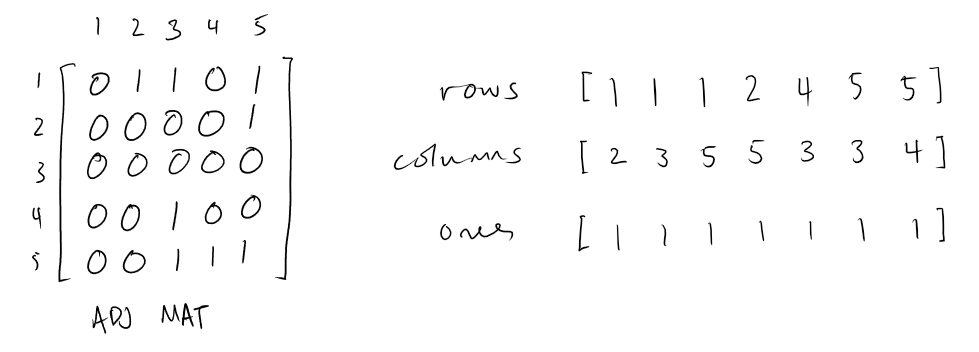 1 2 3 4 5
1 [ 0 1 1 0 1
2 0 0 0 0 1
3 0 0 0 0 0
4 0 0 1 0 0
5 0 0 1 1 1 ]
ADJ MAT
rows [ 1 1 1 2 4 5 5 ]
columns [ 2 3 5 5 3 3 4 ]
ones [ 1 1 1 1 1 1 1 ]